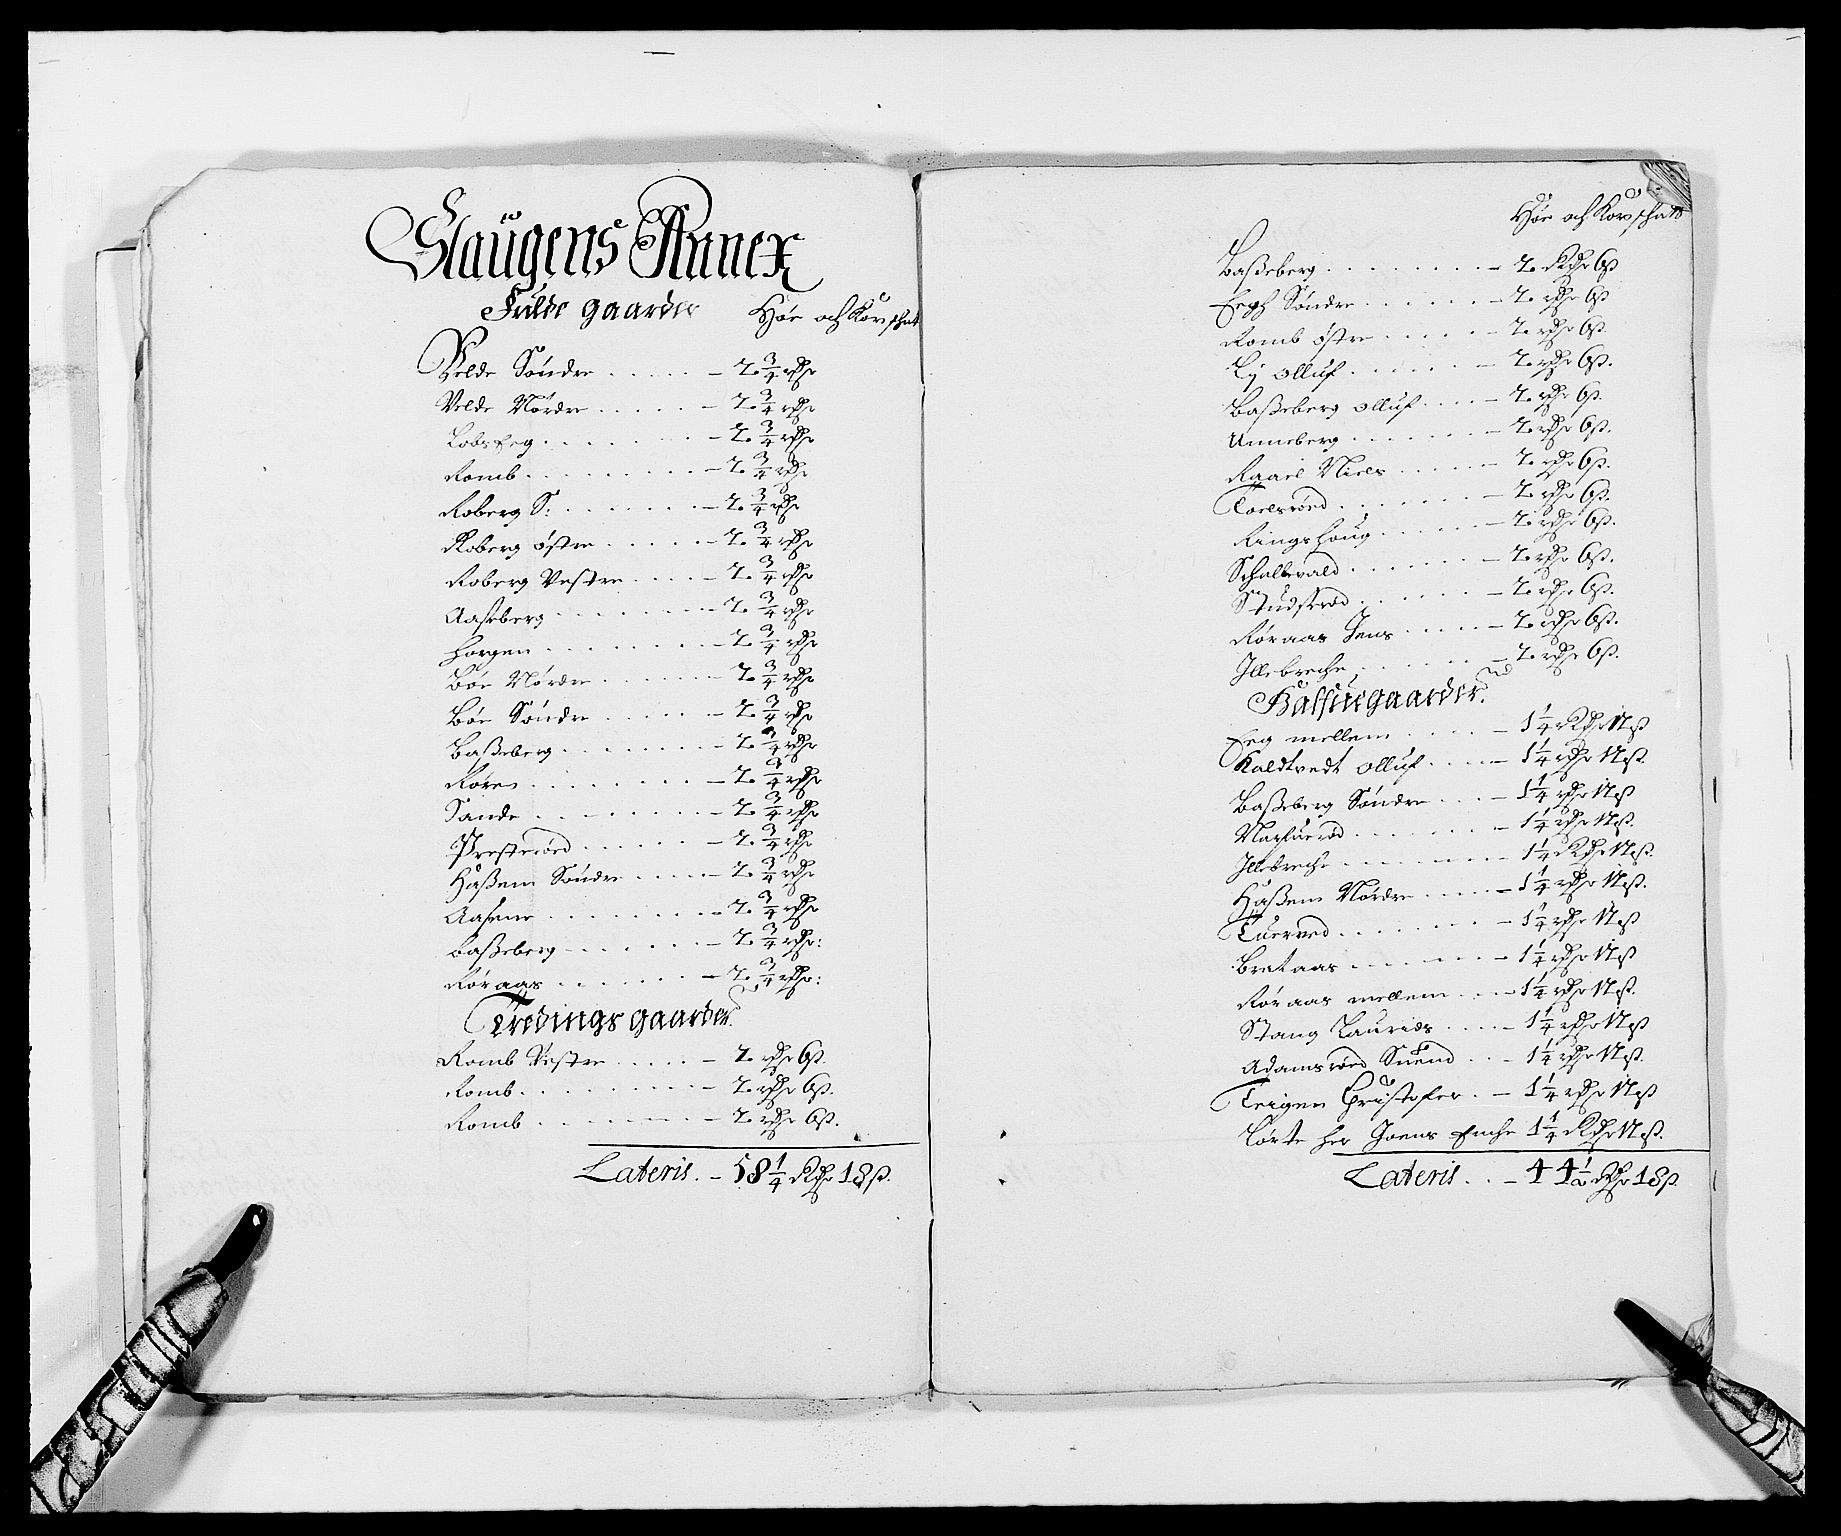 Slaugens Annex
Fulde gaarder Høe och Korn schatt
Velde Søndre . . . . . – 2 3/4 rdr
Velde Nørdre . . . . . – 2 3/4 rdr
Lobs Eeg . . . . . – 2 3/4 rdr
Romb . . . . . – 2 3/4 rdr
Roberg S: . . . . . – 2 3/4 rdr
Roberg østre . . . . . – 2 3/4 rdr
Roberg Vestre . . . . . – 2 3/4 rdr
Aaseberg . . . . . – 2 3/4 rdr
Horgen . . . . . – 2 3/4 rdr
Bøe Nørdre . . . . . – 2 3/4 rdr
Bøe Søndre . . . . . – 2 3/4 rdr
Baßeberg . . . . . – 2 3/4 rdr
Røren . . . . . – 2 3/4 rdr
Sande . . . . . – 2 3/4 rdr
Presterøed . . . . . – 2 3/4 rdr
Haßem Søndre . . . . . – 2 3/4 rdr
Aasene . . . . . – 2 3/4 rdr
Baßeberg . . . . . – 2 3/4 rdr:
Røraas . . . . . – 2 3/4 rdr:
Tredings gaarder.
Romb Vestre . . . . . – 2 rdr 6 ß.
Romb . . . . . – 2 rdr 6 ß.
Romb . . . . . – 2 rdr 6 ß.
Lateris. – 58 1/4 Rdr 18 ß.
Høe och Korn schatt
Baßeberg . . . . . – 2 Rdr 6 ß
Eegh Søndre . . . . . – 2 rdr 6 ß
Romb østre . . . . . – 2 rdr 6 ß.
Ly Olluf . . . . . – 2 rdr 6 ß.
Baßeberg Olluf . . . . – 2 rdr 6 ß.
Unneberg . . . . . – 2 rdr 6 ß.
Raael Niels . . . . . – 2 rdr 6 ß.
Toelsrøed . . . . . – 2 rdr 6 ß.
Ringshoug . . . . . – 2 rdr 6 ß.
Schallevald . . . . . – 2 rdr 6 ß.
Studsrød . . . . . – 2 rdr 6 ß.
Røraas Jens . . . . . – 2 rdr 6 ß.
Illebreche . . . . . – 2 rdr 6 ß.
Halfuegaarder.
Eeg mellem . . . . – 1 1/4 Rdr 11 ß
Kaldtvedt Olluf . . . . – 1 1/4 rdr 11 ß.
Baßeberg Søndre . . . – 1 1/4 rdr 11 ß
Narfuerød . . . . . – 1 1/4 rdr 11 ß.
Illebreche . . . . . – 1 1/4 Rdr 11 ß.
Haßem Nørdre . . . . – 1 1/4 rdr 11 ß.
Tuerved . . . . . – 1 1/4 rdr 11 ß
Brataas . . . . . – 1 1/4 rdr 11 ß
Røraas mellem . . . – 1 1/4 rdr 11 ß.
Stang Laurids . . . . – 1 1/4 rdr 11 ß
Adamsrøed Suend . . – 1 1/4 rdr 11 ß.
Teigen Christofer . – 1 1/4 rdr 11 ß
Lørte her Joens Enche 1 1/4 Rdr 11 ß.
Lateris . . – 44 1/2 Rdr 18 ß.